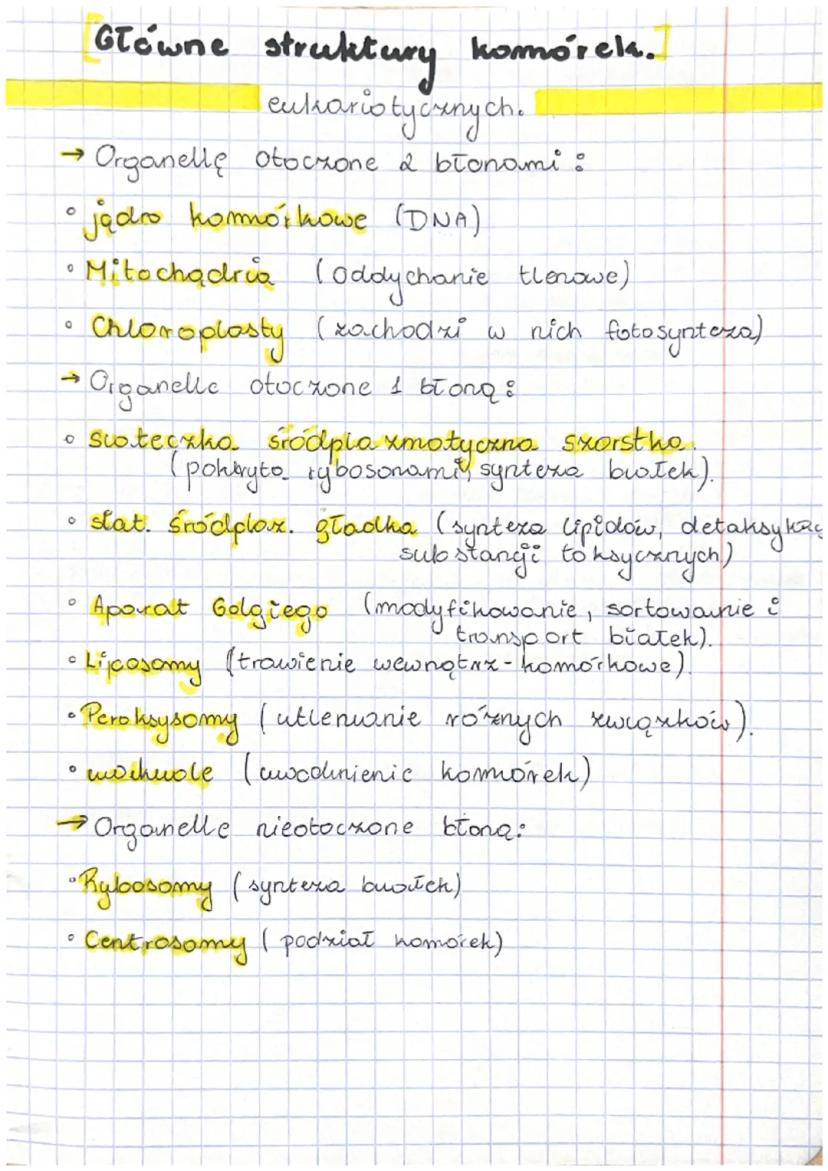 [Główne struktury komórek.]
eukariotycznych.
→ Organellę otoczone 2 błonami:
° jądro komórkowe (DNA)
° Mitochądria (oddychanie tlenowe)
° Chloroplasty (zachodzi w nich fotosynteza)
→ Organelle otoczone 1 błoną:
° siateczka śródplazmatyczna szorstka.
(pokryta rybosonami, synteza białek).
° siat. śródplaz. gładka (synteza lipidów, detaksykac
substancji toksycznych)
° Aparat Golgiego (modyfikowanie, sortowanie i
transport białek).
° Liposomy (trawienie wewnątrz-komórkowe).
° Peroksysomy (utlenianie różnych związków).
° wakuole (uwodnienie komórek)
→ Organelle nieotoczone błoną:
° Rybosomy (synteza białek)
° Centrosomy (podział komórek)